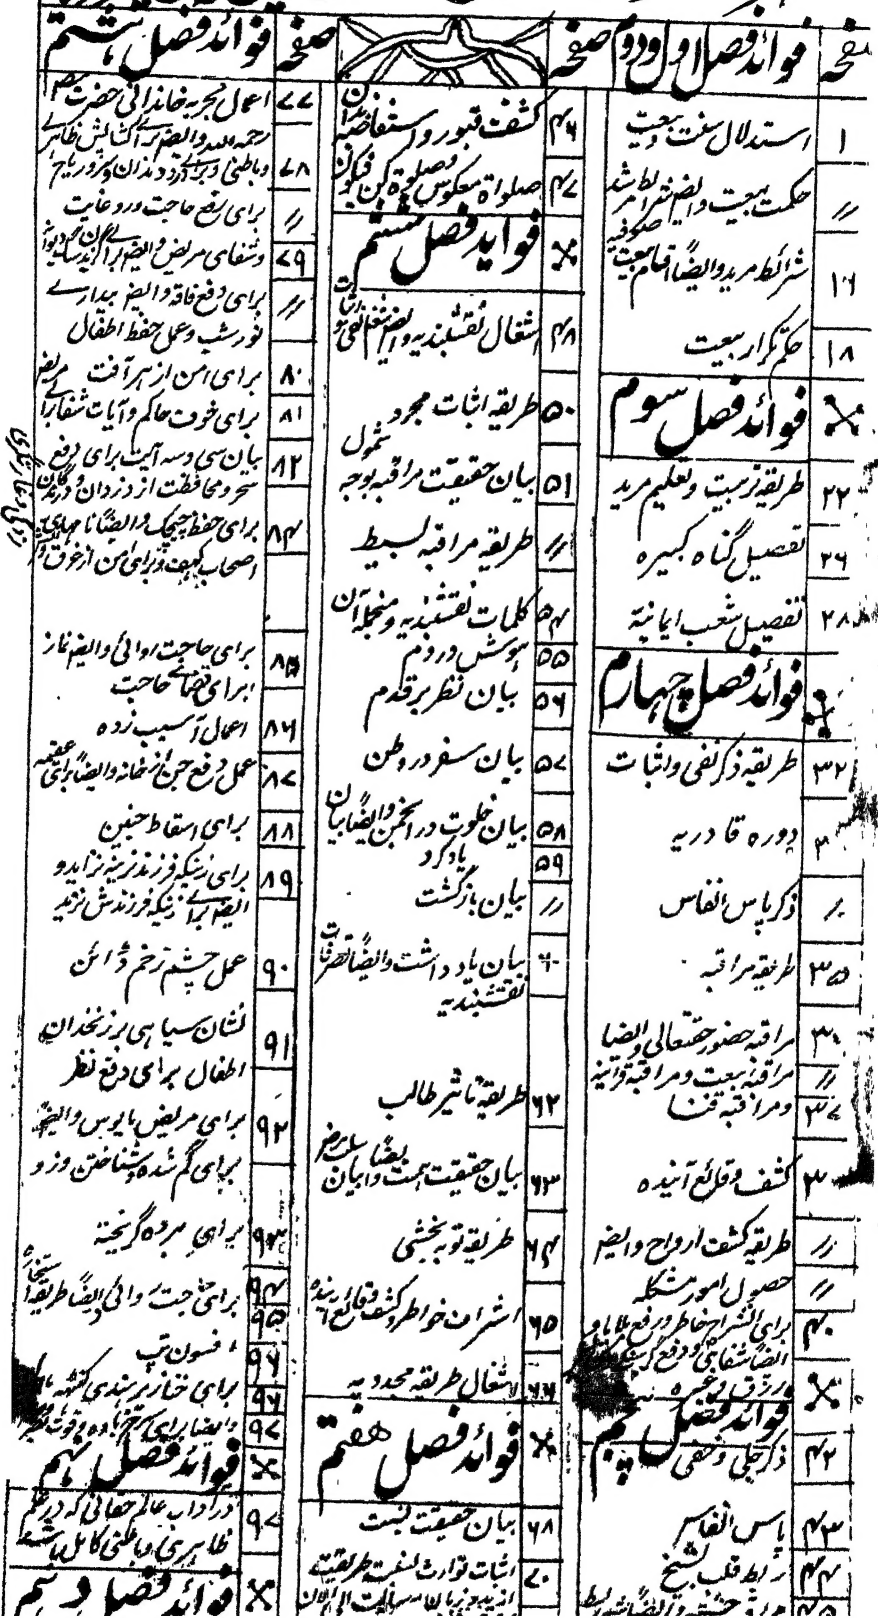 صفحه فوائد فصل اول ودوم
۱ استدلال سنت وبیعت
〃 حکمت بیعت وایضاً شرائط مرشد صوفیه
۱۶ شرائط مرید وایضاً اقسام بیعت
۱۸ حکم تکرار بیعت
فوائد فصل سوم
۲۲ طریقه تربیت وتعلیم مرید
۲۶ تفصیل گناه کبیره
۲۸ تفصیل شعب ایمانیة
فوائد فصل چهارم
۳۲ طریقه ذکر نفی واثبات
دوره قادریه
ذکر پاس انفاس
۳۵ طریقه مراقبه
مراقبه حضور حقتعالی وایضا
〃 مراقبه بیعت ومراقبه
۳۷ ومراقبه فنا
کشف وقائع آینده
〃 طریقه کشف ارواح وایضاً
〃 حصول امور مشکله
۴۰ برای انشراح خاطر ودفع بلا
ایضاً شفای
ورزق وغیره
فوائد فصل پنجم
۴۲ ذکر جلی وخفی
۴۳ پاس انفاس
۴۴ رابط قلب شیخ
صفحه
۴۶ کشف قبور واستفاضه بدان
۴۷ صلواة معکوس وصلوة کن فیکون
فواید فصل ششم
۴۸ اشغال نقشبندیه وایضاً شغل نفی واثبات
۵۰ طریقه اثبات مجرد
۵۱ بیان حقیقت مراقبه بوجه شمول
〃 طریقه مراقبه بسیط
۵۴ کلمات نقشبندیه ومنجمله آن
۵۵ هوش در دم
۵۶ بیان نظر بر قدم
۵۷ بیان سفر در وطن
۵۸ بیان خلوت در انجمن وایضاً بیان
۵۹ یاد کرد
〃 بیان بازگشت
۶۰ بیان یاد داشت وایضاً تصرفات
نقشبندیه
۶۲ طریقه تاثیر طالب
۶۳ بیان حقیقت همت وایضاً بیان سلب مرض
۶۴ طریقه توبه بخشی
۶۵ اشراف خواطر وکشف وقائع آینده
۶۶ اشغال طریقه مجددیه
فوائد فصل هفتم
۶۸ بیان حقیقت نسبت
۷۰ اثبات توارث نسبت طریقت
صفحه فوائد فصل هشتم
۷۷ اعمال مجربه خاندانی حضرت
رحمه الله وایضاً برای کشایش ظاهری
۷۸ وباطنی وبرای درد دندان وسر وریاح
〃 برای رفع حاجت ورد غایت
۷۹ وشفای مریض وایضاً برای گزیدن سگ دیوانه
〃 برای دفع فاقه وایضاً بیداری
نور شب وعمل حفظ اطفال
۸۰ برای امن از هر آفت
۸۱ برای خوف حاکم وآیات شفا برای مریض
۸۲ بیان سی وسه آیت برای دفع
سحر ومحافظت از دزدان ودرندگان
۸۴ برای حفظ چیچک وایضاً نامهای
اصحاب کهف وبرای امن از غرق
۸۵ برای حاجت روائی وایضاً نماز
برای قضای حاجت
۸۶ اعمال آسیب زده
۸۷ عمل دفع جن از خانه وایضاً برای عقیمه
۸۸ برای اسقاط جنین
۸۹ برای زنیکه فرزند نرینه نزاید و
ایضاً برای زنیکه فرزندش نزید
۹۰ عمل چشم زخم ڈائن
۹۱ نشان سیاهی بر زنخدان
اطفال برای دفع نظر
۹۲ برای مریض مایوس وایضاً
برای گم شده وشناختن دزد
۹۳ برای برده گریخته
۹۴ برای حاجت روائی وایضاً طریقه استخاره
۹۵
۹۶ افسون تپ
۹۶ برای خنازیر
۹۷ وایضا برای
فوائد فصل نهم
۹۷ در آداب عالم حقانی که در علم
ظاهری وباطنی کامل باشد
فوائد فصل دهم